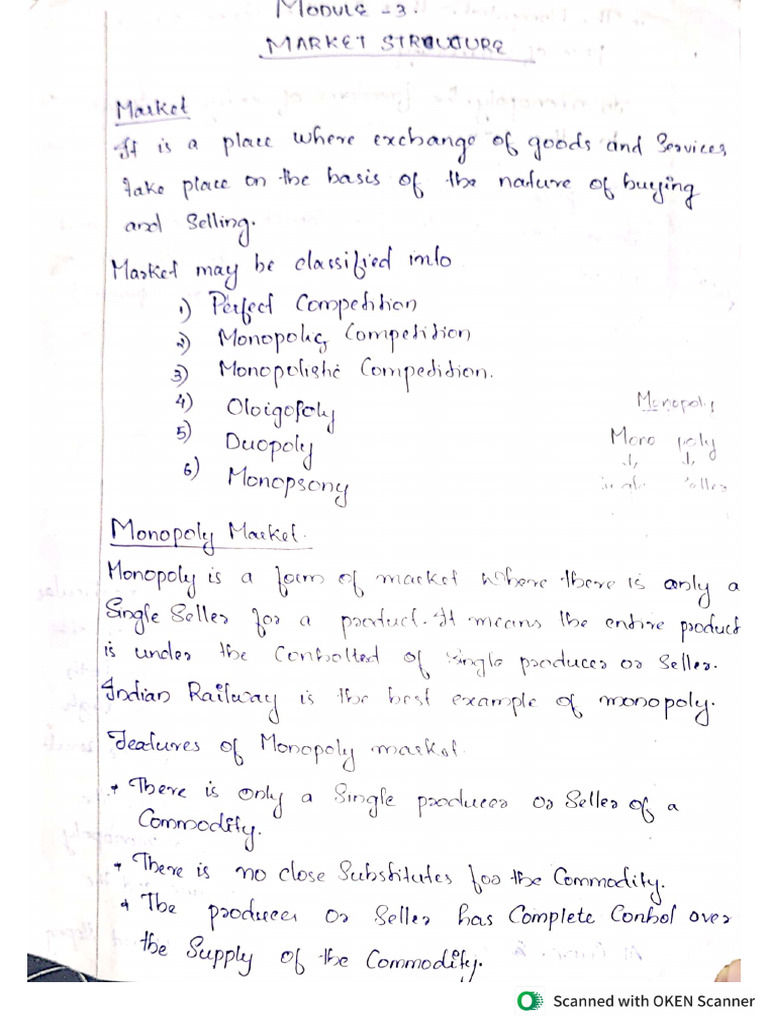 MODULE -3.
MARKET STRUCTURE
Market
It is a place where exchange of goods and Services
take place on the basis of the nature of buying
and Selling.
Market may be classified into
1) Perfect Competition
2) Monopolic Competition
3) Monopolistic Competition.
4) Oloigopoly
5) Duopoly
6) Monopsony
Monopoly
Mono poly
↓ ↓
single seller
Monopoly Market.
Monopoly is a form of market where there is only a
Single Seller for a product. It means the entire product
is under the Controlled of single producer or Seller.
Indian Railway is the best example of monopoly.
Features of Monopoly market.
• There is only a Single producer or Seller of a
Commodity.
• There is no close Substitutes for the Commodity.
• The producer or Seller has Complete Control over
the Supply of the Commodity.
Scanned with OKEN Scanner